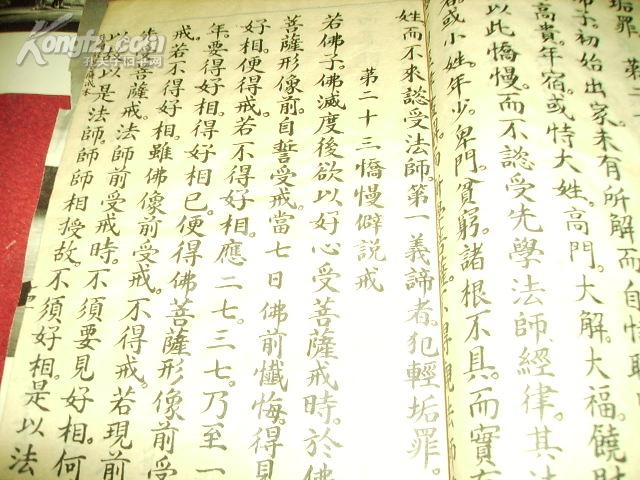 垢罪。第
子。初始出家。未有所解。而自恃
高貴。年宿。或恃大姓。高門。大解。大福。饒財
以此憍慢。而不諮受先學法師經律。其法
或小姓。年少。卑門。貧窮。諸根不具。而實有
姓而不來諮受法師。第一義諦者。犯輕垢罪。
第二十三憍慢僻說戒
若佛子。佛滅度後欲以好心受菩薩戒時。於佛
菩薩形像前。自誓受戒。當七日佛前懺悔。得見
好相便得戒。若不得好相。應二七。三七。乃至一
年。要得好相。得好相已。便得佛菩薩形像前受
戒。若不得好相。雖佛像前受戒。不得戒。若現前
菩薩戒。法師前受戒時。不須要見好相。何
以是法師。師師相授故。不須好相。是以法
Kongfz.com
孔夫子旧书网